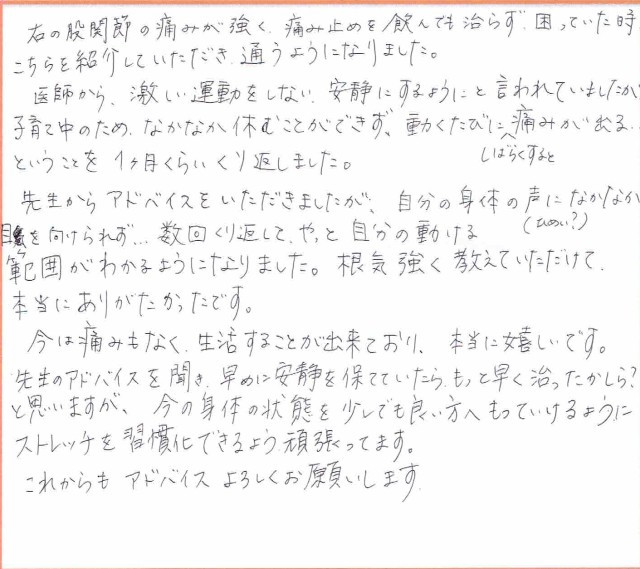 右の股関節の痛みが強く、痛み止めを飲んでも治らず、困っていた時
こちらを紹介していただき、通うようになりました。
医師から、激しい運動をしない、安静にするようにと言われていましたが
子育て中のため、なかなか休むことができず、動くたびに痛みが出る…
しばらくすると
ということを1ヶ月くらいくり返しました。
先生からアドバイスをいただきましたが、自分の身体の声になかなか
目を向けられず…数回くり返して、やっと自分の動ける
範囲がわかるようになりました。根気強く教えていただけて、
本当にありがたかったです。
今は痛みもなく、生活することが出来ており、本当に嬉しいです。
先生のアドバイスを聞き、早めに安静を保てていたら、もっと早く治ったかしら?
と思いますが、今の身体の状態を少しでも良い方へもっていけるように
ストレッチを習慣化できるよう頑張ってます。
これからもアドバイスよろしくお願いします。